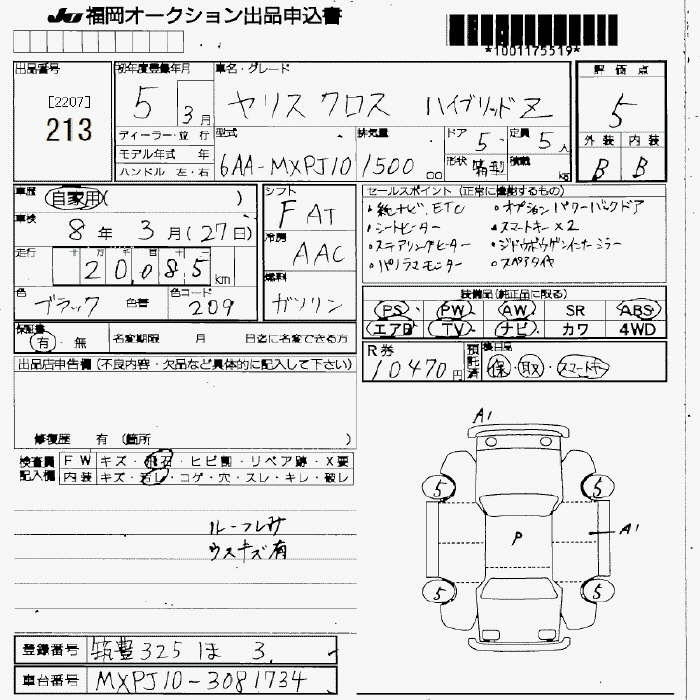 JU 福岡オークション出品申込書
*1001175519*
出品番号
[2207]
213
初年度登録年月
5 3月
ディーラー・並 行
モデル年式 年
ハンドル 左・右
車名・グレード
ヤリス クロス ハイブリッド Z
型式
6AA-MXPJ10
排気量
1500 cc
ドア 5
形状 箱型
定員 5 人
積載 kg
評 価 点
5
外 装 内 装
B B
車歴 自家用( )
車検 8 年 3 月(27日)
走行 十 万 千 百 十
20,085 km
色 ブラック 色替
色コード 209
シフト F AT
冷房 AAC
燃料 ガソリン
セールスポイント (正常に機能するもの)
・純ナビ、ETC ・オプション パワーバックドア
・シートヒーター ・スマートキー×2
・ステアリングヒーター ・ジドウボウゲンインナーミラー
・パノラマモニター ・スペアタイヤ
装備品(純正品に限る)
PS PW AW SR ABS
エアB TV ナビ カワ 4WD
保証書 有・無
名変期限 月 日迄に名変できる方
R券 10470円 預託済
後日品 保・取・スマートキー
出品店申告欄 (不良内容・欠品など具体的に記入して下さい)
修復歴 有 (箇所 )
検査員 FW キズ・飛石・ヒビ割・リペア跡・X要
記入欄 内装 キズ・汚レ・コゲ・穴・スレ・キレ・破レ
ルーフレザ
ウスキズ有
A1
5 5
P A1
5 5
登録番号 筑豊325 ほ 3
車台番号 MXPJ10-3081734